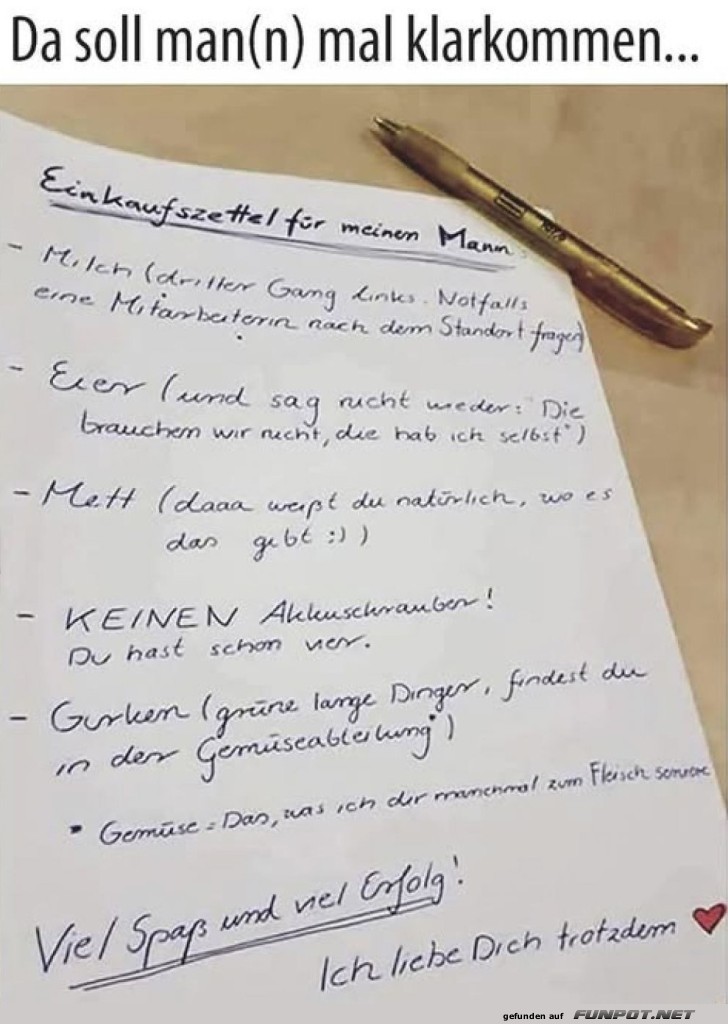 Da soll man(n) mal klarkommen...
Einkaufszettel für meinen Mann:
- Milch (dritter Gang links. Notfalls
eine Mitarbeiterin nach dem Standort fragen)
- Eier (und sag nicht wieder: "Die
brauchen wir nicht, die hab ich selbst")
- Mett (daaa weißt du natürlich, wo es
das gibt :) )
- KEINEN Akkuschrauber!
Du hast schon vier.
- Gurken (grüne lange Dinger, findest du
in der Gemüseabteilung*)
* Gemüse = Das, was ich dir manchmal zum Fleisch serviere
Viel Spaß und viel Erfolg!
Ich liebe Dich trotzdem ♥
gefunden auf FUNPOT.NET